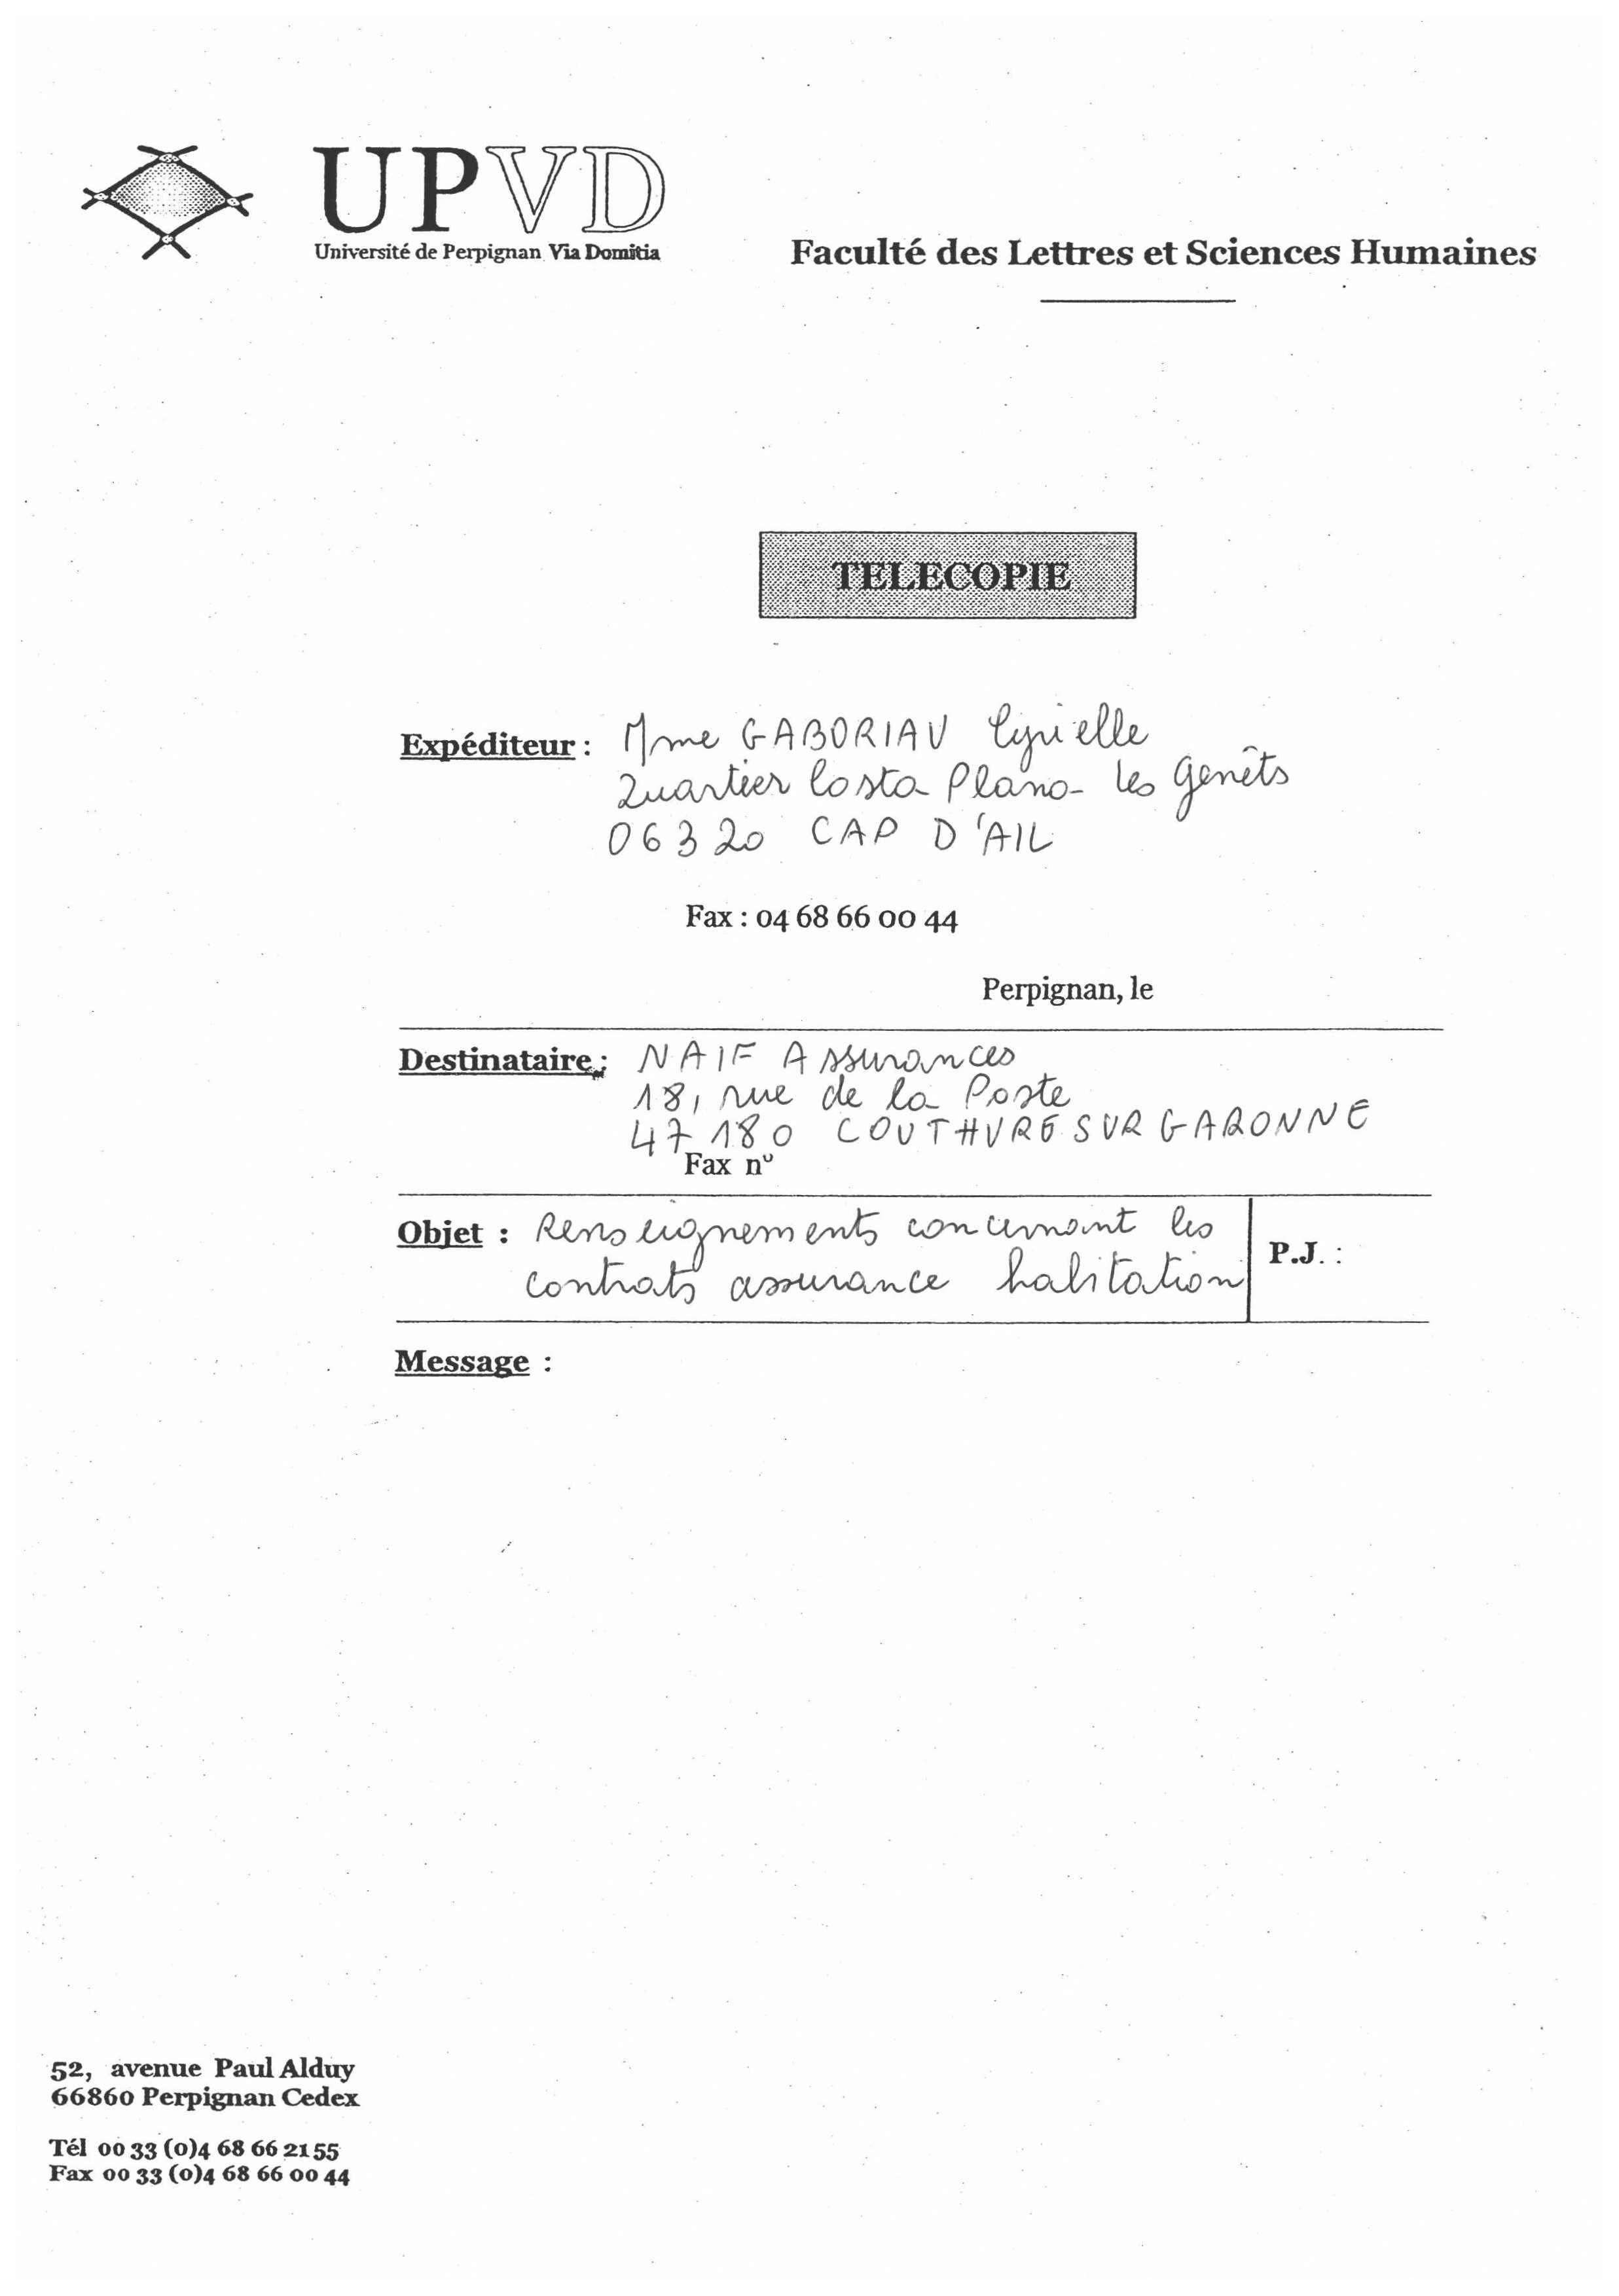 UPVD
Université de Perpignan Via Domitia
Faculté des Lettres et Sciences Humaines
TELECOPIE
Expéditeur : Mme GABORIAU Cyrielle
Quartier Costa Plana - les Genêts
06320 CAP D'AIL
Fax : 04 68 66 00 44
Perpignan, le
Destinataire : NAIF Assurances
18, rue de la Poste
47180 COUTHURE SUR GARONNE
Fax n°
Objet : Renseignements concernant les
contrats assurance habitation
P.J. :
Message :
52, avenue Paul Alduy
66860 Perpignan Cedex
Tél 00 33 (0)4 68 66 21 55
Fax 00 33 (0)4 68 66 00 44